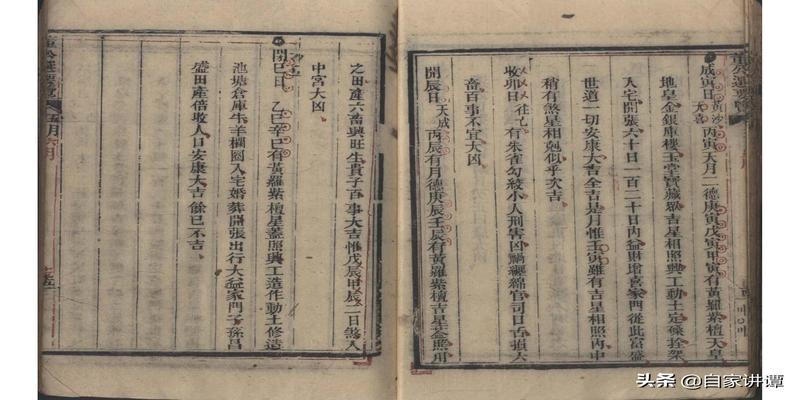 成寅日 黃沙 大喜 丙寅天月二德庚寅戊寅甲寅有黃羅紫檀天皇
地皇金銀庫樓玉堂寶藏眾吉星相照興工動土定磉拴架
入宅開張六十日一百二十日內益財增喜家門從此富盛
世道一切安康大吉全吉是月惟壬寅雖有吉星相照丙中
稍有煞星相剋似乎次吉
收卯日 有朱雀勾絞小人刑害凶禍纏綿官司口舌損六
畜百事不宜大凶
開辰日 天成 丙辰有月德庚辰壬辰有黃羅紫檀吉星蓋照用
之田產六畜興旺生貴子百事大吉惟戊辰甲辰二日煞入
中宮大凶
閉巳日 乙巳辛巳有黃羅紫檀星蓋照興工造作動土修造
池塘倉庫牛羊欄圈入宅婚葬開張出行大益家門子孫昌
盛田產倍收人口安康大吉餘巳不吉
五月六月
头条 @自家讲谭